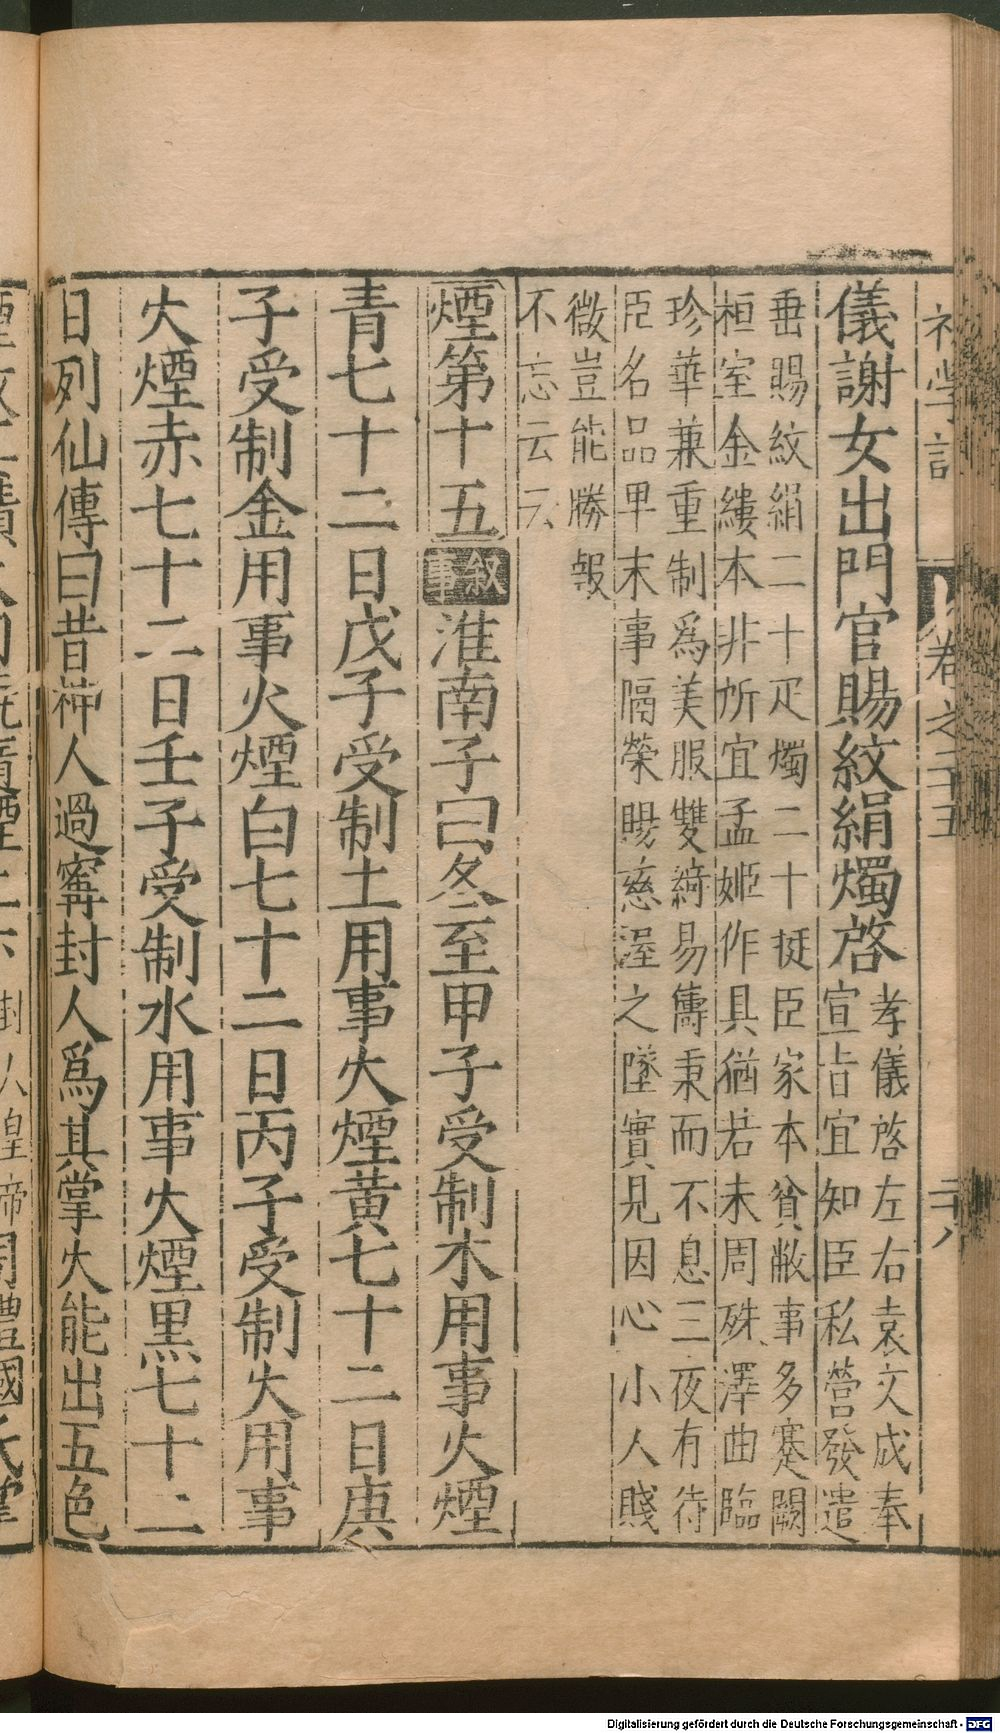 初學記 卷之二十五 二十八
儀謝女出門官賜紋絹燭啓孝儀啓左右袁文成奉
宣旨宜知臣私營發遣
垂賜紋絹二十疋燭二十挺臣家本貧敝事多蹇闕
桓室金縷本非所宜孟姬作具猶若未周殊澤曲臨
珍華兼重制爲美服雙綺易儔秉而不息三夜有待
臣名品卑末事隔榮賜慈渥之墜實見因心小人賤
微豈能勝報
不忘云云
煙第十五叙事淮南子曰冬至甲子受制木用事火煙
青七十二日戊子受制土用事火煙黃七十二日庚
子受制金用事火煙白七十二日丙子受制火用事
火煙赤七十二日壬子受制水用事火煙黑七十二
日列仙傳曰昔神人過寗封人爲其掌火能出五色
封人皇帝周禮國氏掌
Digitalisierung gefördert durch die Deutsche Forschungsgemeinschaft - DFG